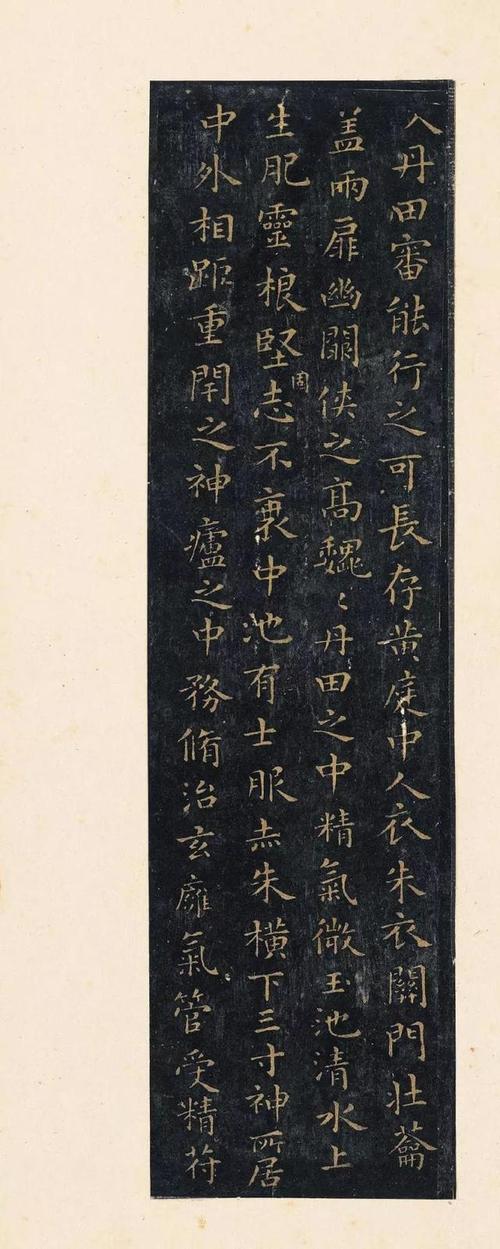 入丹田審能行之可長存黄庭中人衣朱衣關門壯蘥
盖兩扉幽關俠之高巍〻丹田之中精氣微玉池清水上
生肥靈根堅固志不衰中池有士服赤朱横下三寸神所居
中外相距重閇之神廬之中務脩治玄廱氣管受精符